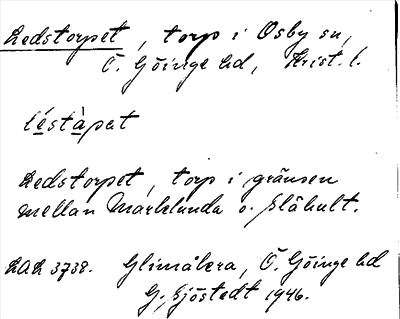 Ledstorpet, torp i Osby sn,
Ö. Göinge hd, Krist. l.
léstàpet
Ledstorpet, torp i gränsen
mellan Marklunda o. Slähult.
LAL 3738. Glimåkra, Ö. Göinge hd
G. Sjöstedt 1946.